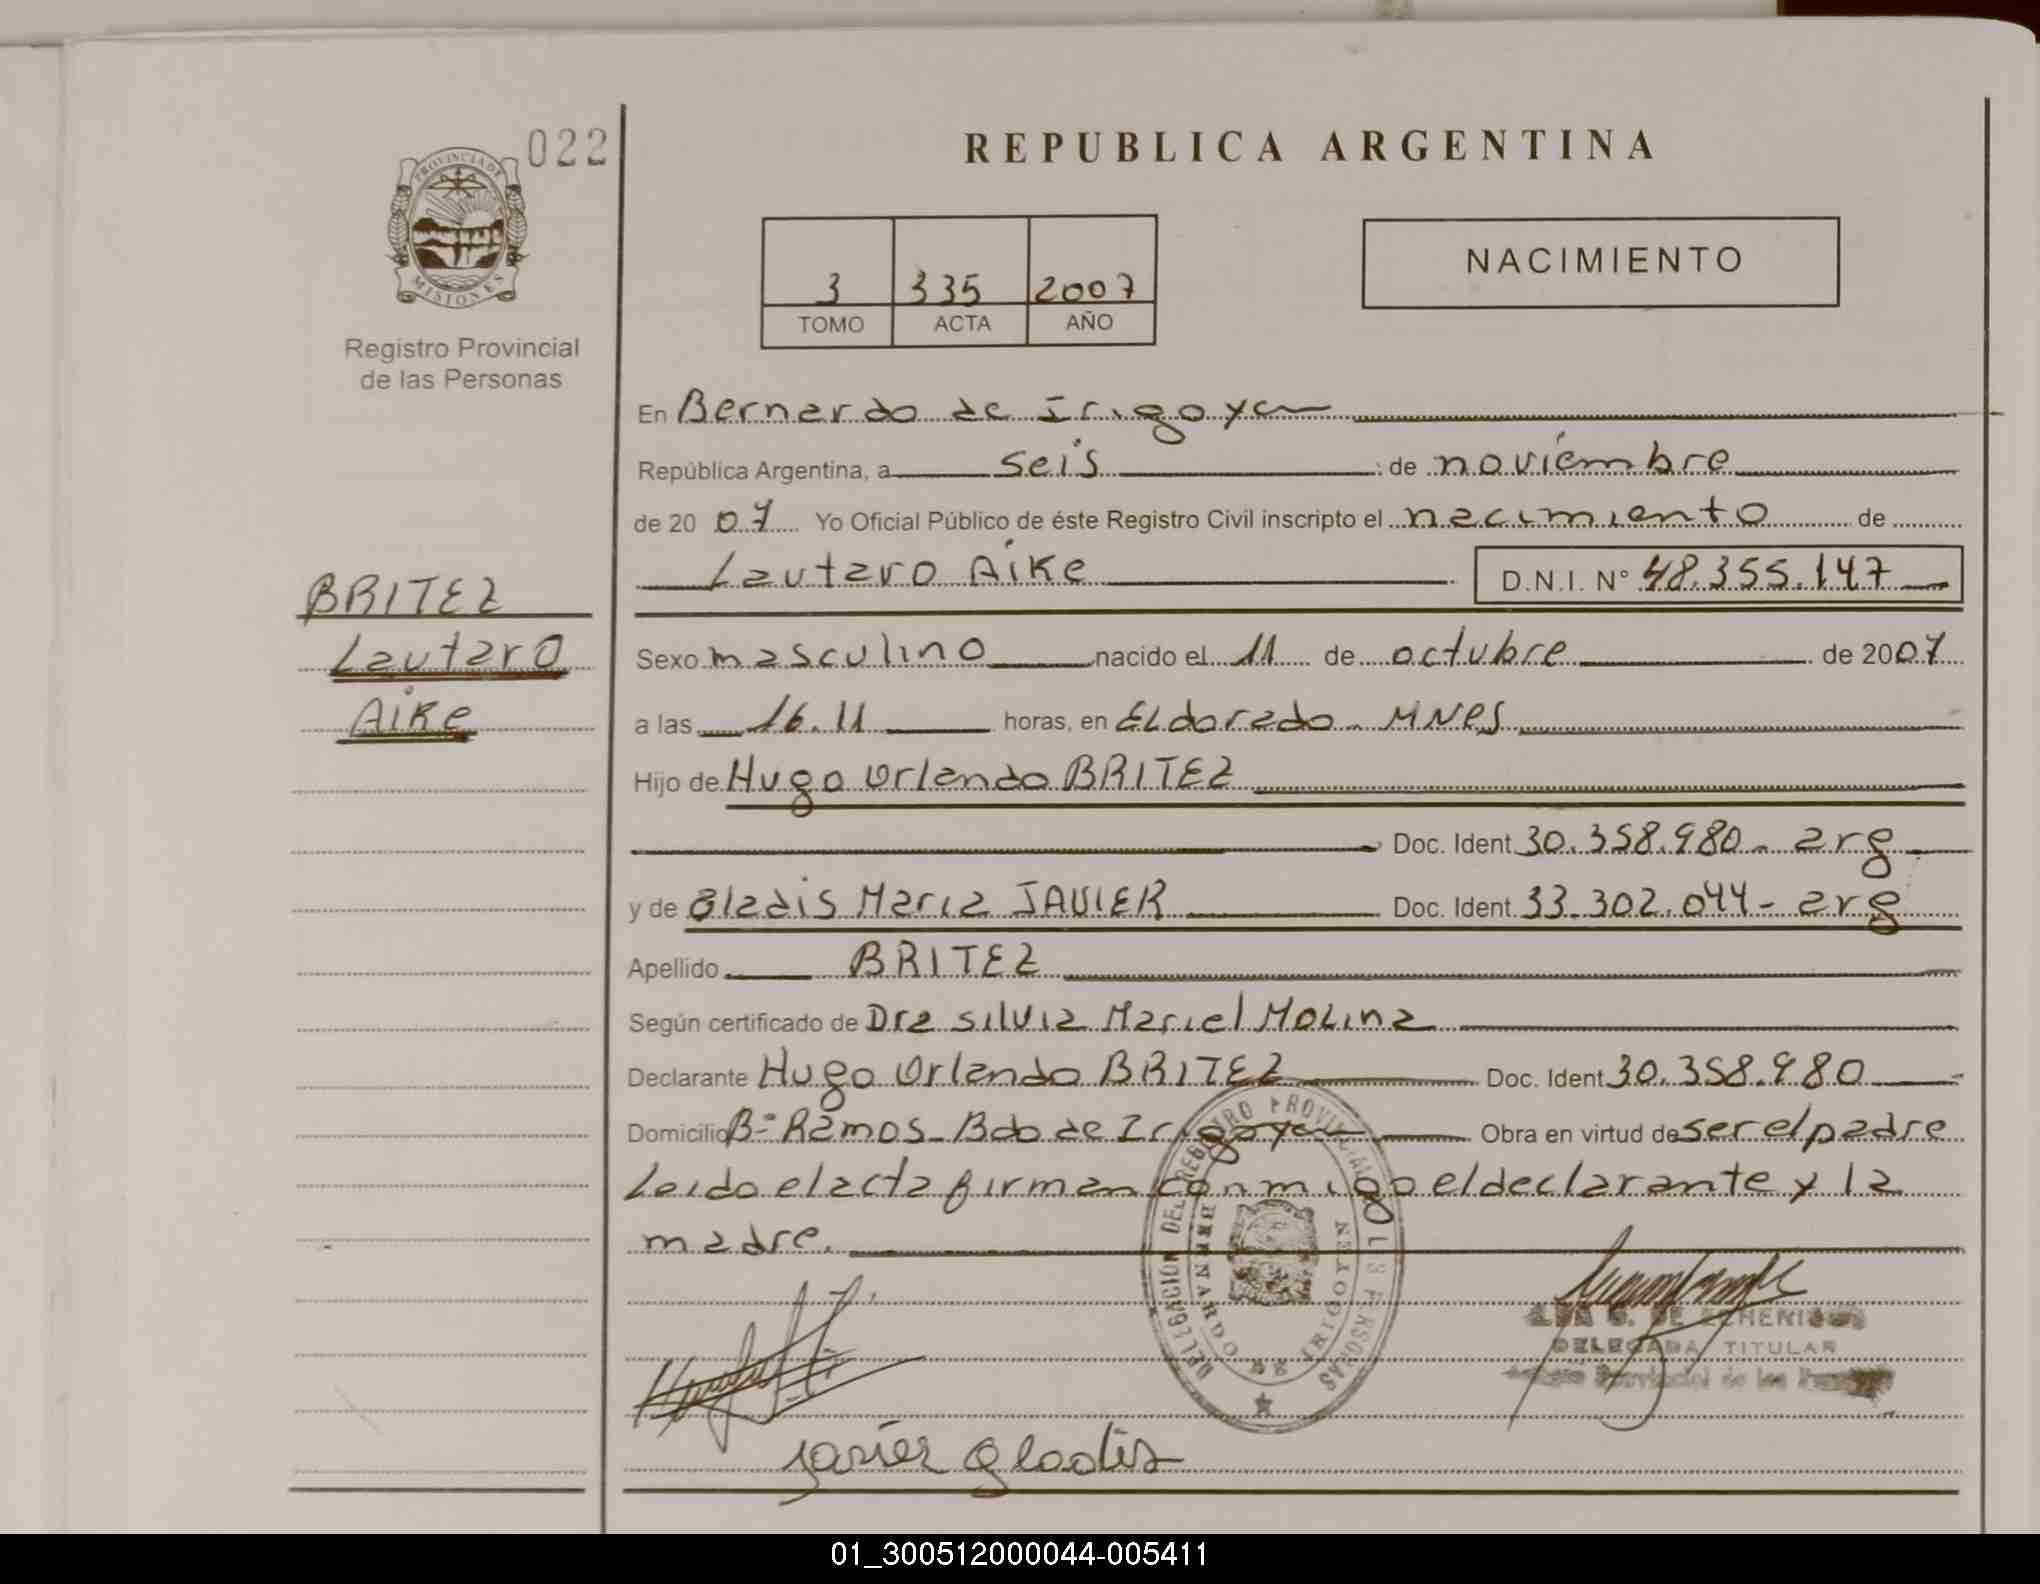 022
REPUBLICA ARGENTINA
PROVINCIA DE
MISIONES
Registro Provincial
de las Personas
3 335 2007
TOMO ACTA AÑO
NACIMIENTO
En Bernardo de Irigoyen
República Argentina, a seis de noviembre
de 20 07 Yo Oficial Público de éste Registro Civil inscripto el nacimiento de
Lautaro Aike D.N.I. N° 48.355.147
BRITEZ
Lautaro
Aike
Sexo masculino nacido el 11 de octubre de 2007
a las 16.11 horas, en ELdorado - MNES
Hijo de Hugo Orlando BRITEZ
Doc. Ident 30.358.980 - arg
y de Gladis Maria JAVIER Doc. Ident 33.302.044 - arg
Apellido BRITEZ
Según certificado de Dra Silvia Mariel MOLina
Declarante Hugo Orlando BRITEZ Doc. Ident 30.358.980
Domicilio B° Ramos - Bdo de Irigoyen Obra en virtud de ser el padre
Leido el acta firman conmigo el declarante y la
madre.
DELEGACION DEL REGISTRO PROVINCIAL DE LAS PERSONAS
BERNARDO DE IRIGOYEN
DELEGADA TITULAR
Provincial de las
Javier Gladis
01_300512000044-005411